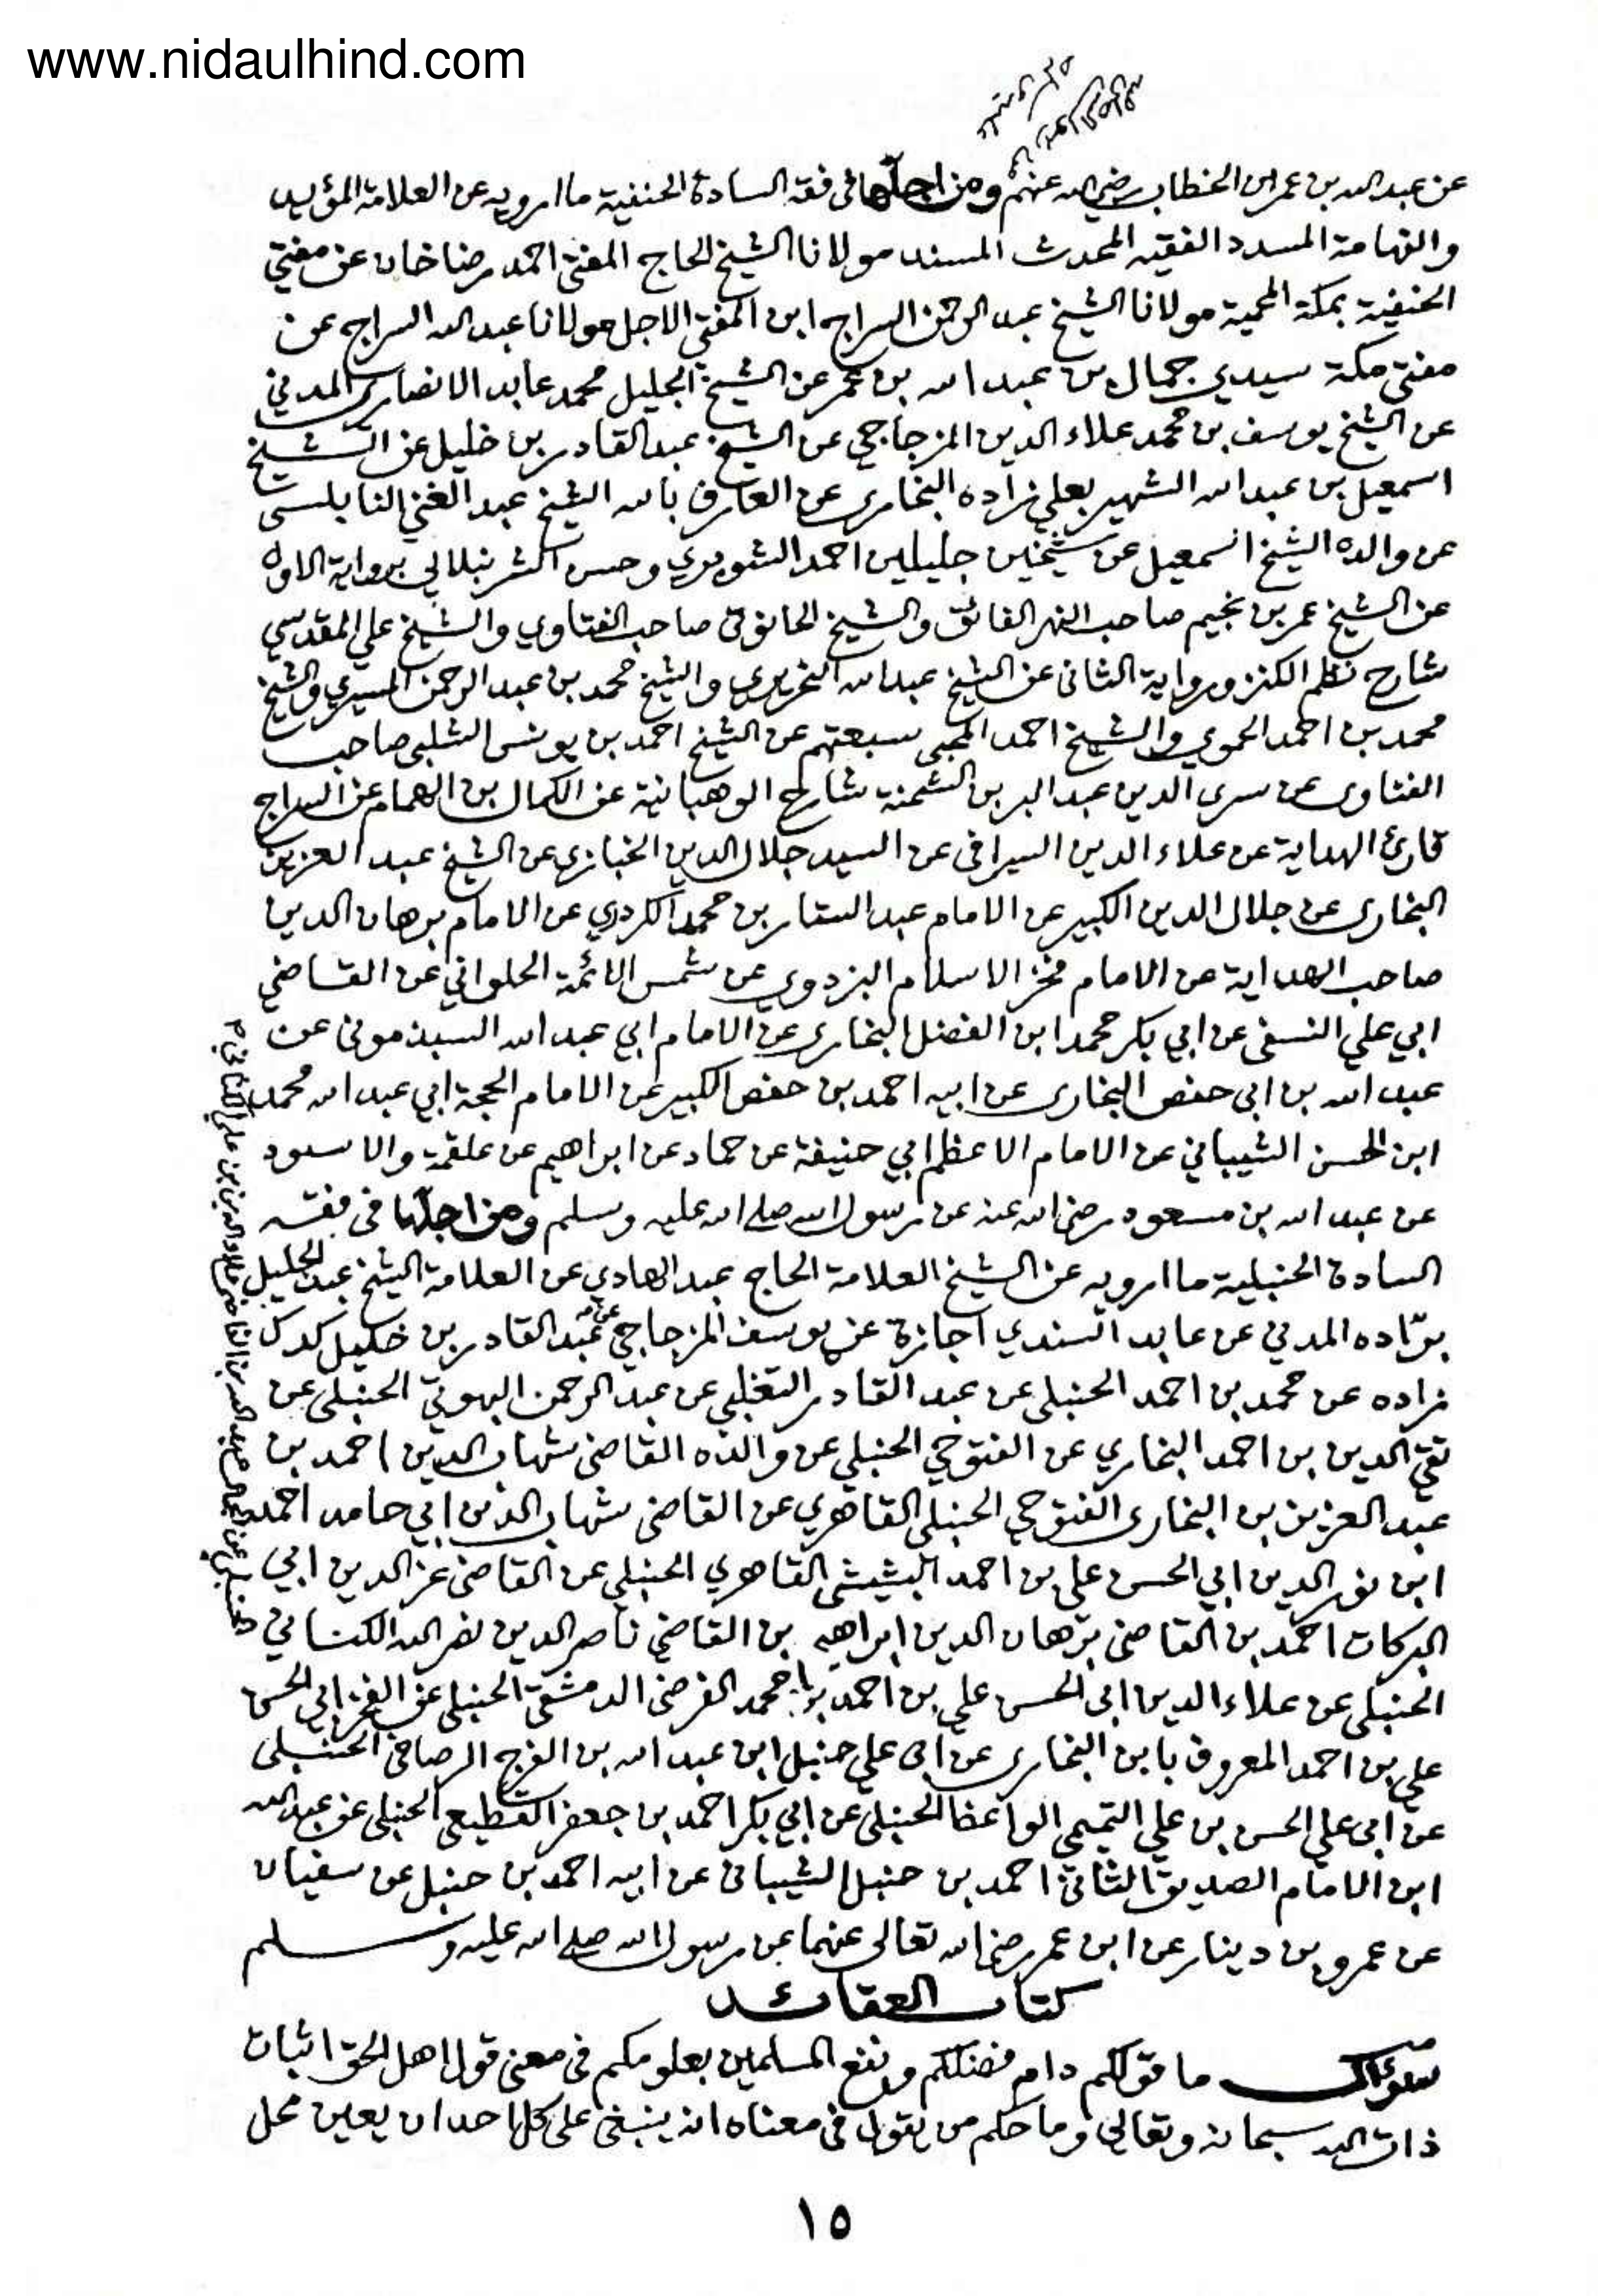 www.nidaulhind.com
عن عبد الله بن عمر ابن الخطاب رضي الله عنهم ومن اجلّها فى فقه السادة الحنفية ما ارويه عن العلامة المؤيد
والفهامة المسدد الفقيه المحدث المسند مولانا الشيخ الحاج المفتى احمد رضا خان عن مفتي
الحنفية بمكة المحمية مولانا الشيخ عبد الرحمن السراج ابن المفتي الاجل مولانا عبد الله السراج عن
مفتى مكة سيدي جمال بن عبد الله بن عمر عن الشيخ الجليل محمد عابد الانصاري المدني
عن الشيخ يوسف بن محمد علاء الدين المزجاجي عن الشيخ عبد القادر بن خليل عن الشيخ
اسمعيل بن عبد الله الشهير بعلي زاده البخارى عن العارف بالله الشيخ عبد الغني النابلسى
عن والده الشيخ اسمعيل عن شيخين جليلين احمد الشوبري وحسن الشرنبلالي برواية الاول
عن الشيخ عمر بن نجيم صاحب النهر الفائق والشيخ الحانوتى صاحب الفتاوي والشيخ علي المقدسي
شارح نظم الكنز ورواية الثانى عن الشيخ عبد الله النحريرى والشيخ محمد بن عبد الرحمن المسيري والشيخ
محمد بن احمد الحموي والشيخ احمد المحبى سبعتهم عن الشيخ احمد بن يونس الشلبى صاحب
الفتاوى عن سرى الدين عبد البر بن الشحنة شارح الوهبانية عن الكمال بن الهمام عن السراج
قارئ الهداية عن علاء الدين السيرافى عن السيد جلال الدين الخبازى عن الشيخ عبد العزيز
البخارى عن جلال الدين الكبير عن الامام عبد الستار بن محمد الكردري عن الامام برهان الدين
صاحب الهداية عن الامام فخر الاسلام البزدوي عن شمس الائمة الحلواني عن القاضي
ابي علي النسفى عن ابي بكر محمد ابن الفضل البخارى عن الامام ابي عبد الله السبذمونى عن
عبد الله بن ابى حفص البخارى عن ابيه احمد بن حفص الكبير عن الامام الحجة ابي عبد الله محمد
ابن الحسن الشيباني عن الامام الاعظم ابي حنيفة عن حماد عن ابراهيم عن علقمة والاسود
عن عبد الله بن مسعود رضى الله عنه عن رسول الله صلى الله عليه وسلم ومن اجلّها فى فقه
السادة الحنبلية ما ارويه عن الشيخ العلامة الحاج عبد الهادي عن العلامة الشيخ عبد الجليل
برّاده المدني عن عابد السندي اجازة عن يوسف المزجاجي عن عبد القادر بن خليل كدك
زاده عن محمد بن احمد الحنبلى عن عبد القادر التغلبى عن عبد الرحمن البهوتي الحنبلى عن
تقي الدين بن احمد البخاري عن الفتوحي الحنبلى عن والده القاضى شهاب الدين احمد بن
عبد العزيز بن البخارى الفتوحي الحنبلى القاهري عن القاضى شهاب الدين ابي حامد احمد
ابن نور الدين ابي الحسن على بن احمد البشيشى القاهري الحنبلى عن القاضى عز الدين ابي
البركات احمد بن القاضى برهان الدين ابراهيم بن القاضي ناصر الدين نصر الله الكنانى
الحنبلى عن علاء الدين ابى الحسن علي بن احمد محمد الفرضى الدمشقى الحنبلى عن الفخر ابي الحسن
علي بن احمد المعروف بابن البخارى عن ابى علي حنبل ابن عبد الله بن الفرج الرصافى الحنبلى
عن ابى علي الحسن بن علي التميمى الواعظ الحنبلى عن ابي بكر احمد بن جعفر القطيعى الحنبلى عن عبد الله
ابن الامام الصديق الثانى احمد بن حنبل الشيبانى عن ابيه احمد بن حنبل عن سفيان
عن عمرو بن دينار عن ابن عمر رضى الله تعالى عنهما عن رسول الله صلى الله عليه وسلم
كتاب العقائد
سؤال ما قولكم دام فضلكم ونفع المسلمين بعلومكم فى معنى قول اهل الحق اثبات
ذات الله سبحانه وتعالى وما حكم من يقول فى معناه انه ينبغى على كل احد ان يعين محل
١٥